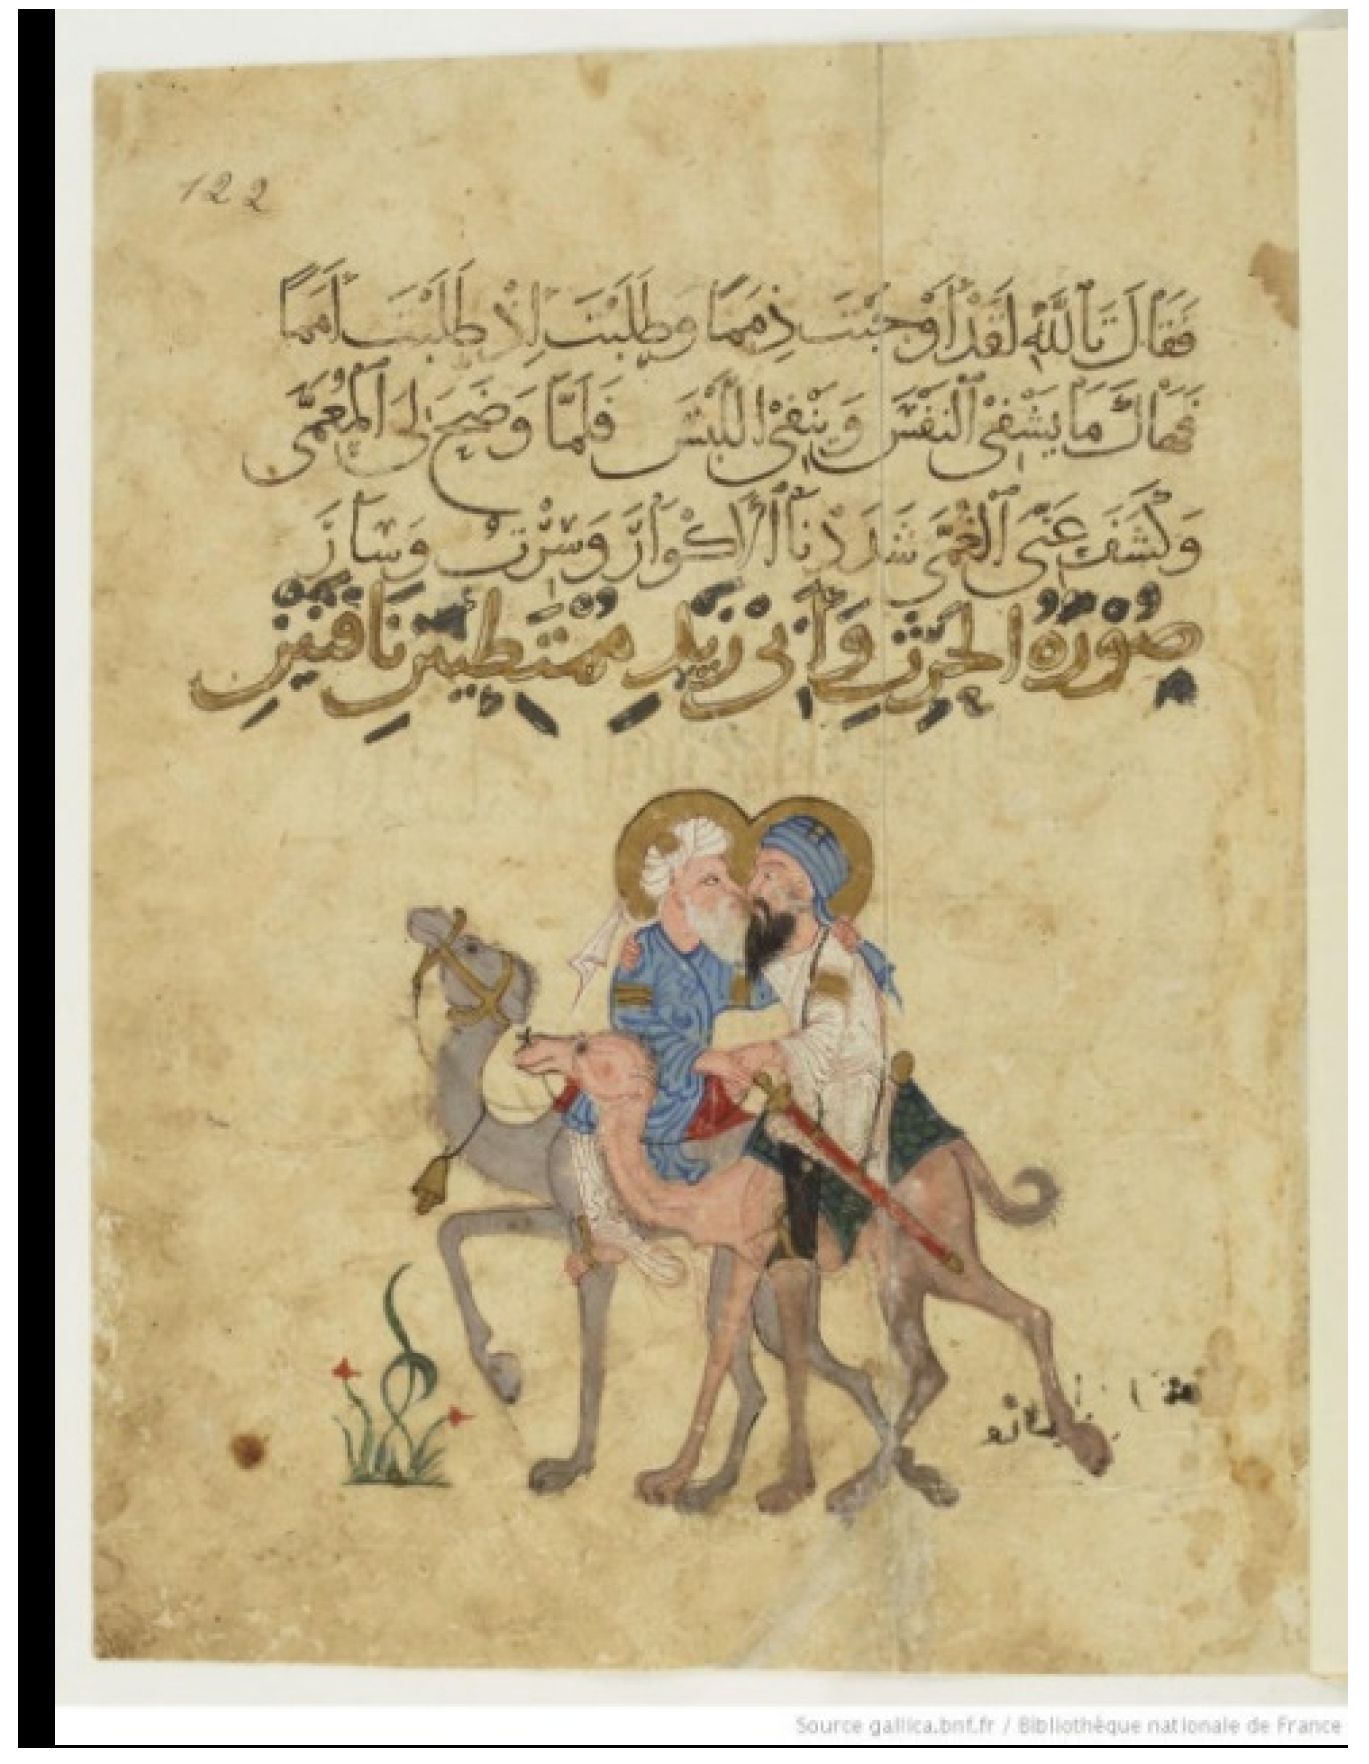 122
فَقَالَ تَاللَّهِ لَقَدْ أَوْجَبْتَ ذِمَمًا وَطَلَبْتَ إِذْ طَلَبْتَ أَمَمًا
فَهَاكَ مَا يَشْفِي النَّفْسَ وَيَنْفِي اللَّبْسَ فَلَمَّا وَضَحَ لِيَ الْمُعَمَّى
وَكَشَفَ عَنِّي الْغُمَّى شَدَدْنَا الْأَكْوَارَ وَسِرْتُ وَسَارَ
صُوْرَةُ الْحَرِثِ وَأَبِي زَيْدٍ مُمْتَطِيَيْنِ نَاقَتَيْنِ
Source gallica.bnf.fr / Bibliothèque nationale de France